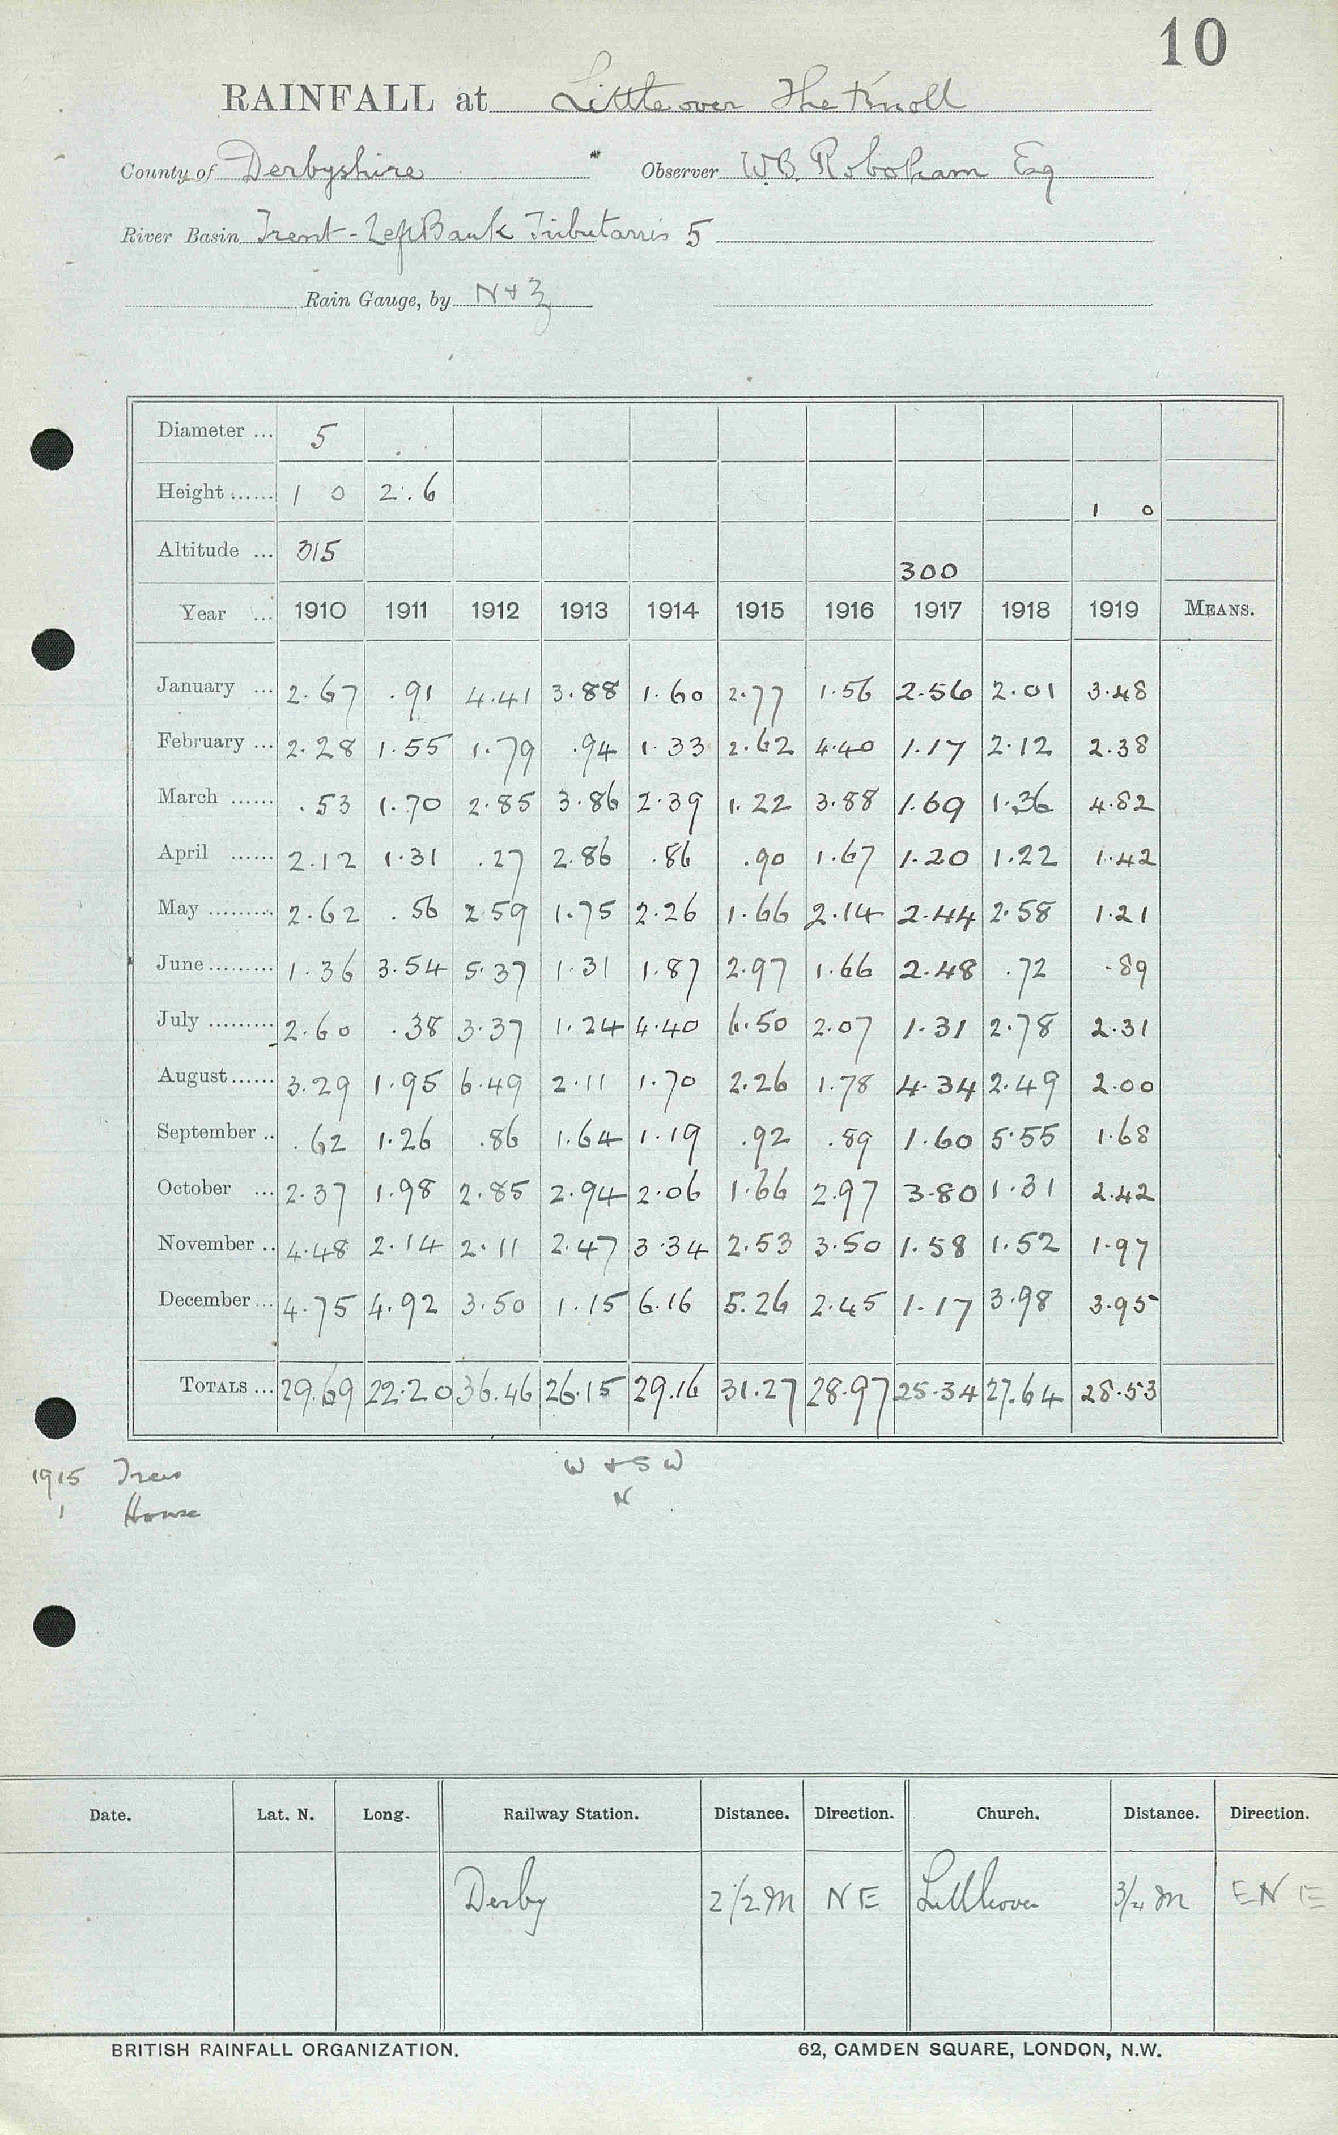 10
RAINFALL at Littleover The Knoll
County of Derbyshire " Observer W.B. Roboham Esq
River Basin Trent - Left Bank Tributaries 5
Rain Gauge, by N + Z
Diameter ... 5
Height ...... 1 0 2.6 1 0
Altitude ... 315 300
Year ... 1910 1911 1912 1913 1914 1915 1916 1917 1918 1919 MEANS.
January ... 2.67 .91 4.41 3.88 1.60 2.77 1.56 2.56 2.01 3.48
February ... 2.28 1.55 1.79 .94 1.33 2.62 4.40 1.17 2.12 2.38
March ...... .53 1.70 2.85 3.86 2.39 1.22 3.88 1.69 1.36 4.82
April ...... 2.12 1.31 .27 2.86 .86 .90 1.67 1.20 1.22 1.42
May ......... 2.62 .56 2.59 1.75 2.26 1.66 2.14 2.44 2.58 1.21
June ......... 1.36 3.54 5.37 1.31 1.87 2.97 1.66 2.48 .72 .89
July ......... 2.60 .38 3.37 1.24 4.40 6.50 2.07 1.31 2.78 2.31
August ...... 3.29 1.95 6.49 2.11 1.70 2.26 1.78 4.34 2.49 2.00
September .. .62 1.26 .86 1.64 1.19 .92 .89 1.60 5.55 1.68
October ... 2.37 1.98 2.85 2.94 2.06 1.66 2.97 3.80 1.31 2.42
November .. 4.48 2.14 2.11 2.47 3.34 2.53 3.50 1.58 1.52 1.97
December ... 4.75 4.92 3.50 1.15 6.16 5.26 2.45 1.17 3.98 3.95
TOTALS ... 29.69 22.20 36.46 26.15 29.16 31.27 28.97 25.34 27.64 28.53
1915 Trees W + S W
House N
Date. Lat. N. Long. Railway Station. Distance. Direction. Church. Distance. Direction.
Derby 2 1/2 M NE Littleover 3/4 M ENE
BRITISH RAINFALL ORGANIZATION. 62, CAMDEN SQUARE, LONDON, N.W.